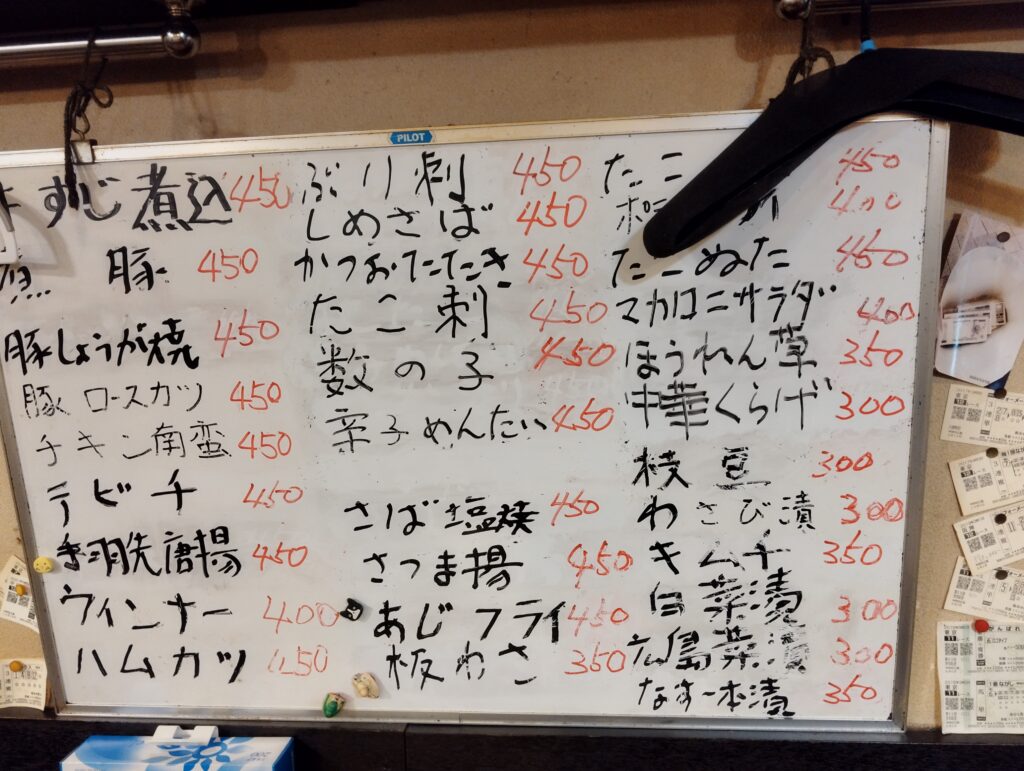 PILOT
すじ煮込 450
豚 450
豚しょうが焼 450
豚ロースカツ 450
チキン南蛮 450
テビチ 450
手羽先唐揚 450
ウィンナー 400
ハムカツ 450
ぶり刺 450
しめさば 450
かつおたたき 450
たこ刺 450
数の子 450
辛子めんたい 450
さば塩焼 450
さつま揚 450
あじフライ 450
板わさ 350
たこ 450
ポテ 400
たこぬた 450
マカロニサラダ 400
ほうれん草 350
中華くらげ 300
枝豆 300
わさび漬 300
キムチ 350
白菜漬 300
広島菜漬 300
なす一本漬 350